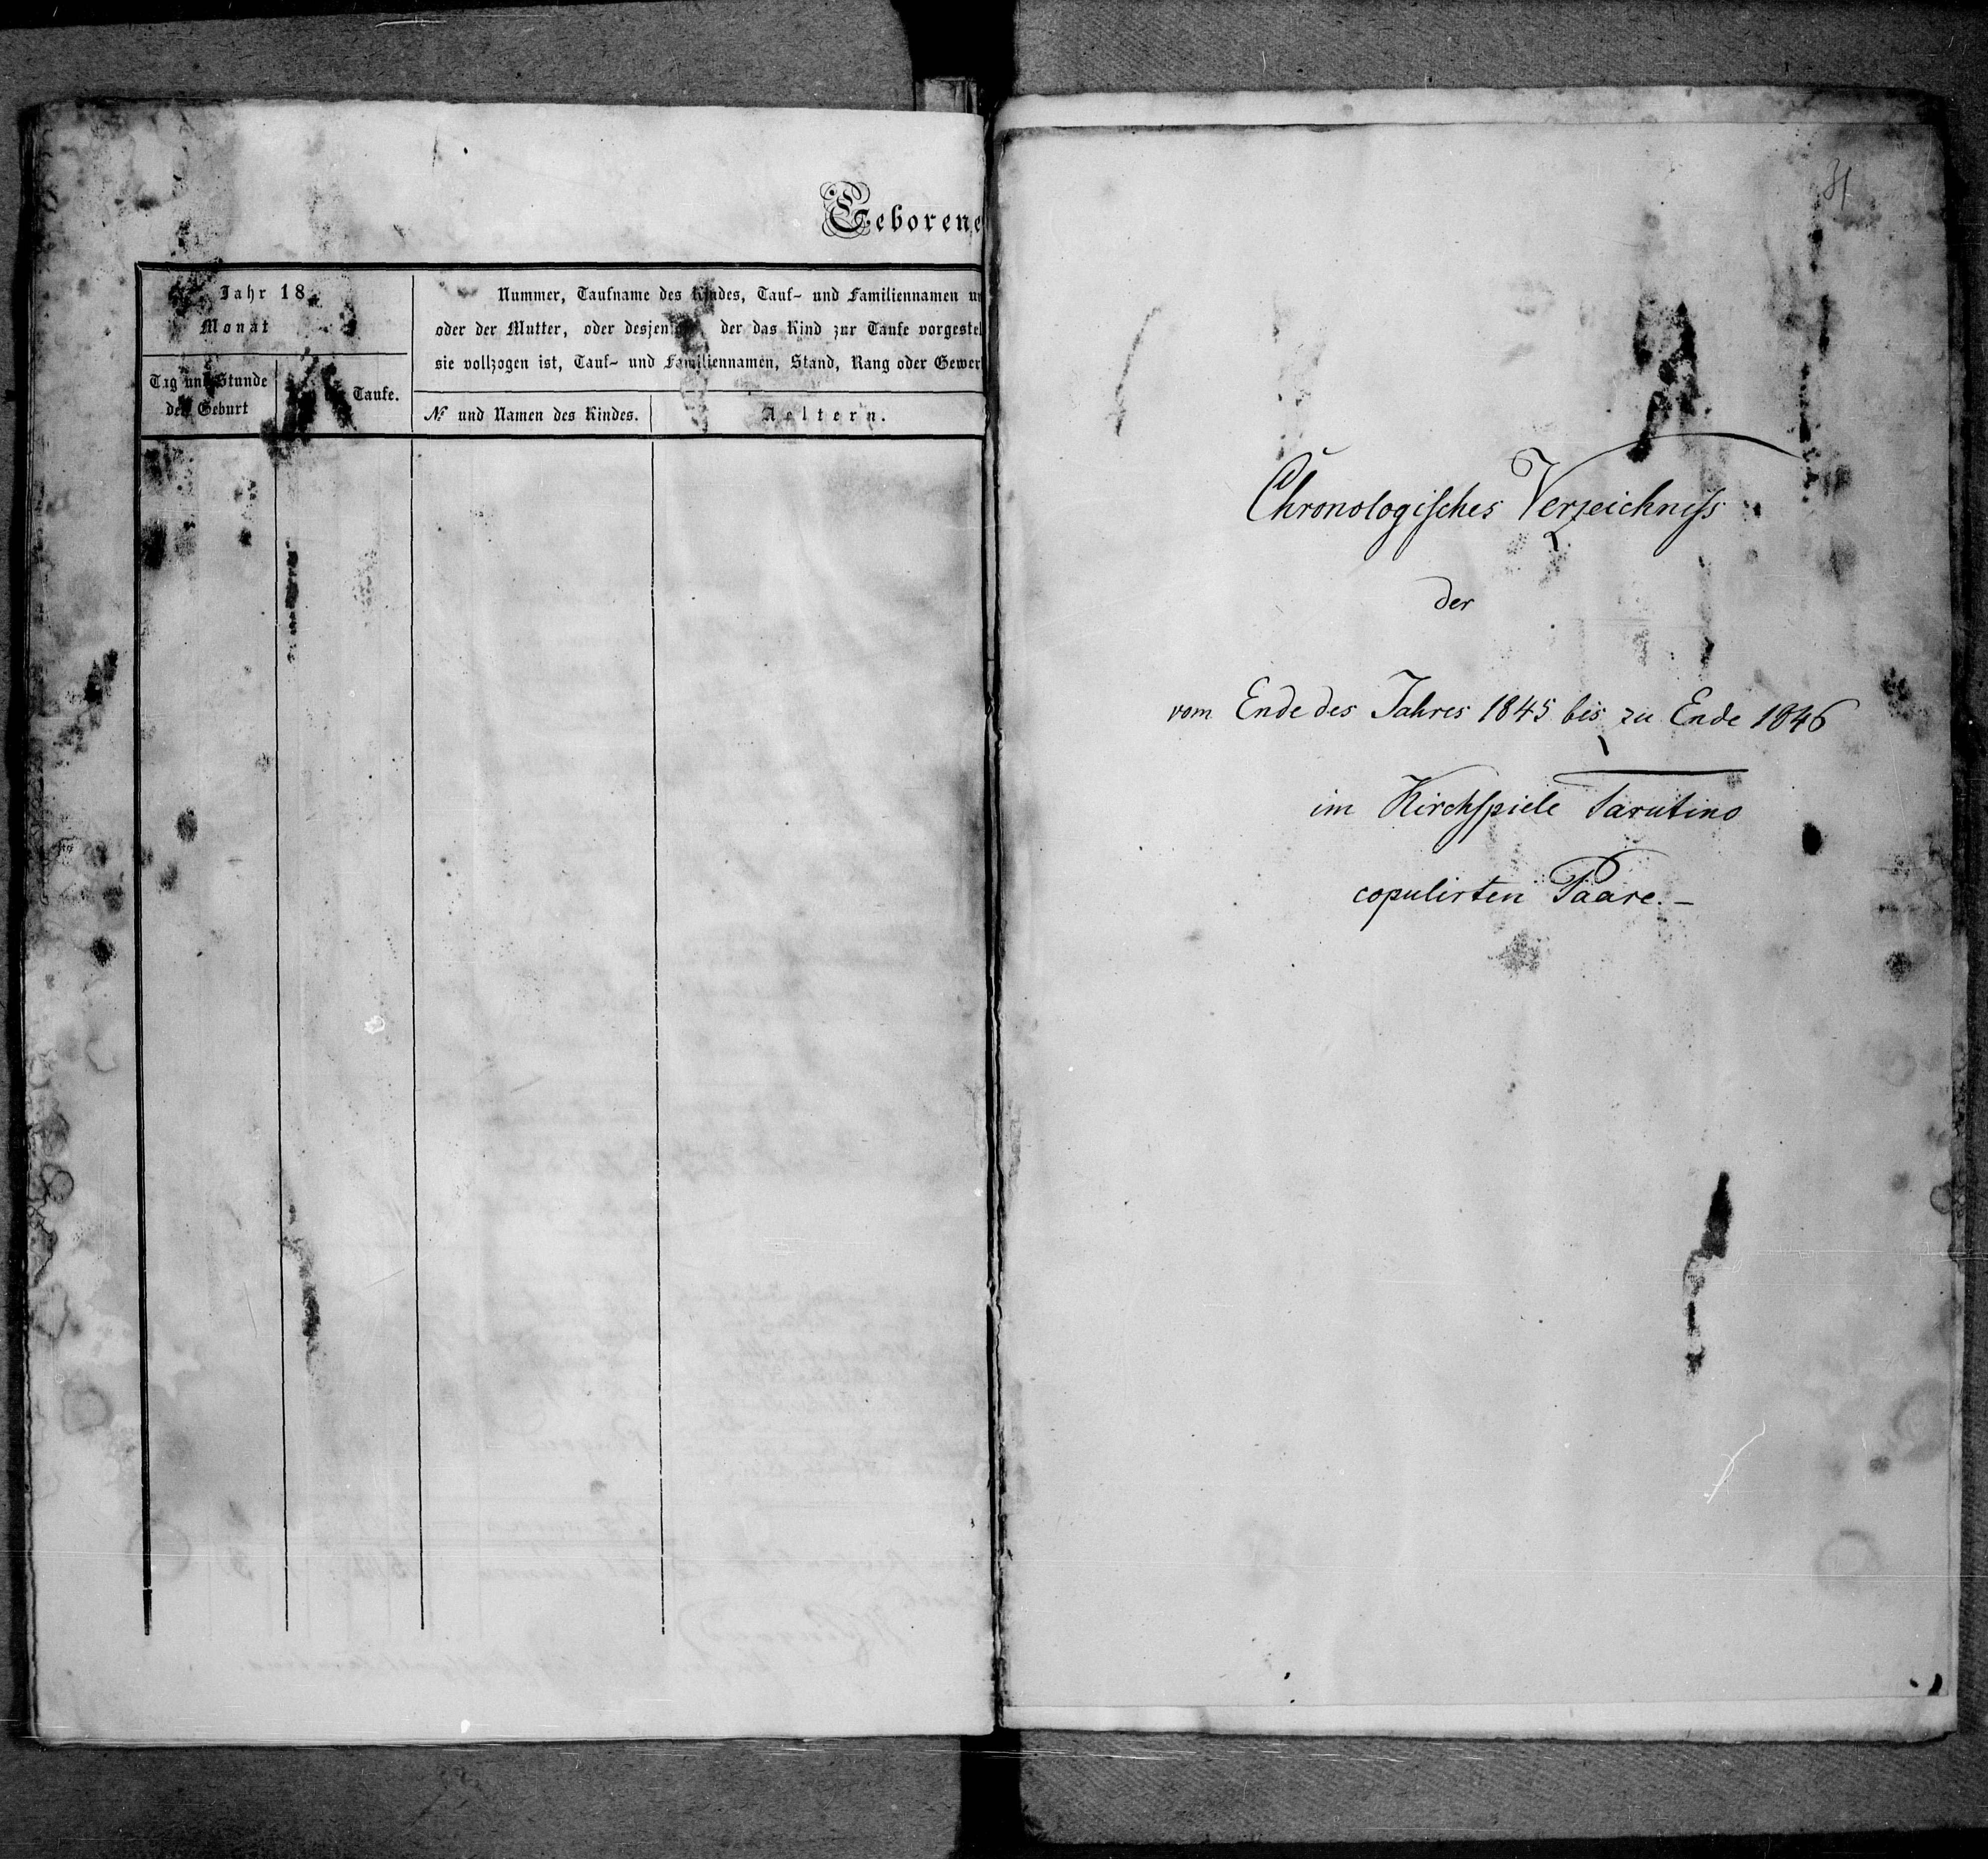 Geborene
Jahr 18
Monat
Tag und Stunde
der Geburt
Taufe.
Nummer, Taufname des Kindes, Tauf- und Familiennamen
oder der Mutter, oder desjen der das Kind zur Taufe vorgestel
sie vollzogen ist, Tauf- und Familiennamen, Stand, Rang oder Gewer
№ und Namen des Kindes.
Aeltern.
31
Chronologisches Verzeichniss
der
vom Ende des Jahres 1845 bis zu Ende 1846
im Kirchspiele Tarutino
copulirten Paare.–